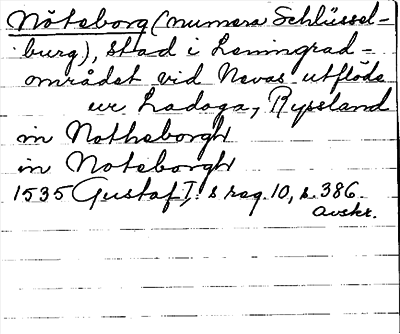 Nöteborg (numera Schlüssel-
burg), stad i Leningrad-
området vid Nevas utflöde
ur Ladoga, Ryssland
in Notheborgh
in Noteborgh
1535 Gustaf I:s reg. 10, s. 386.
Avskr.